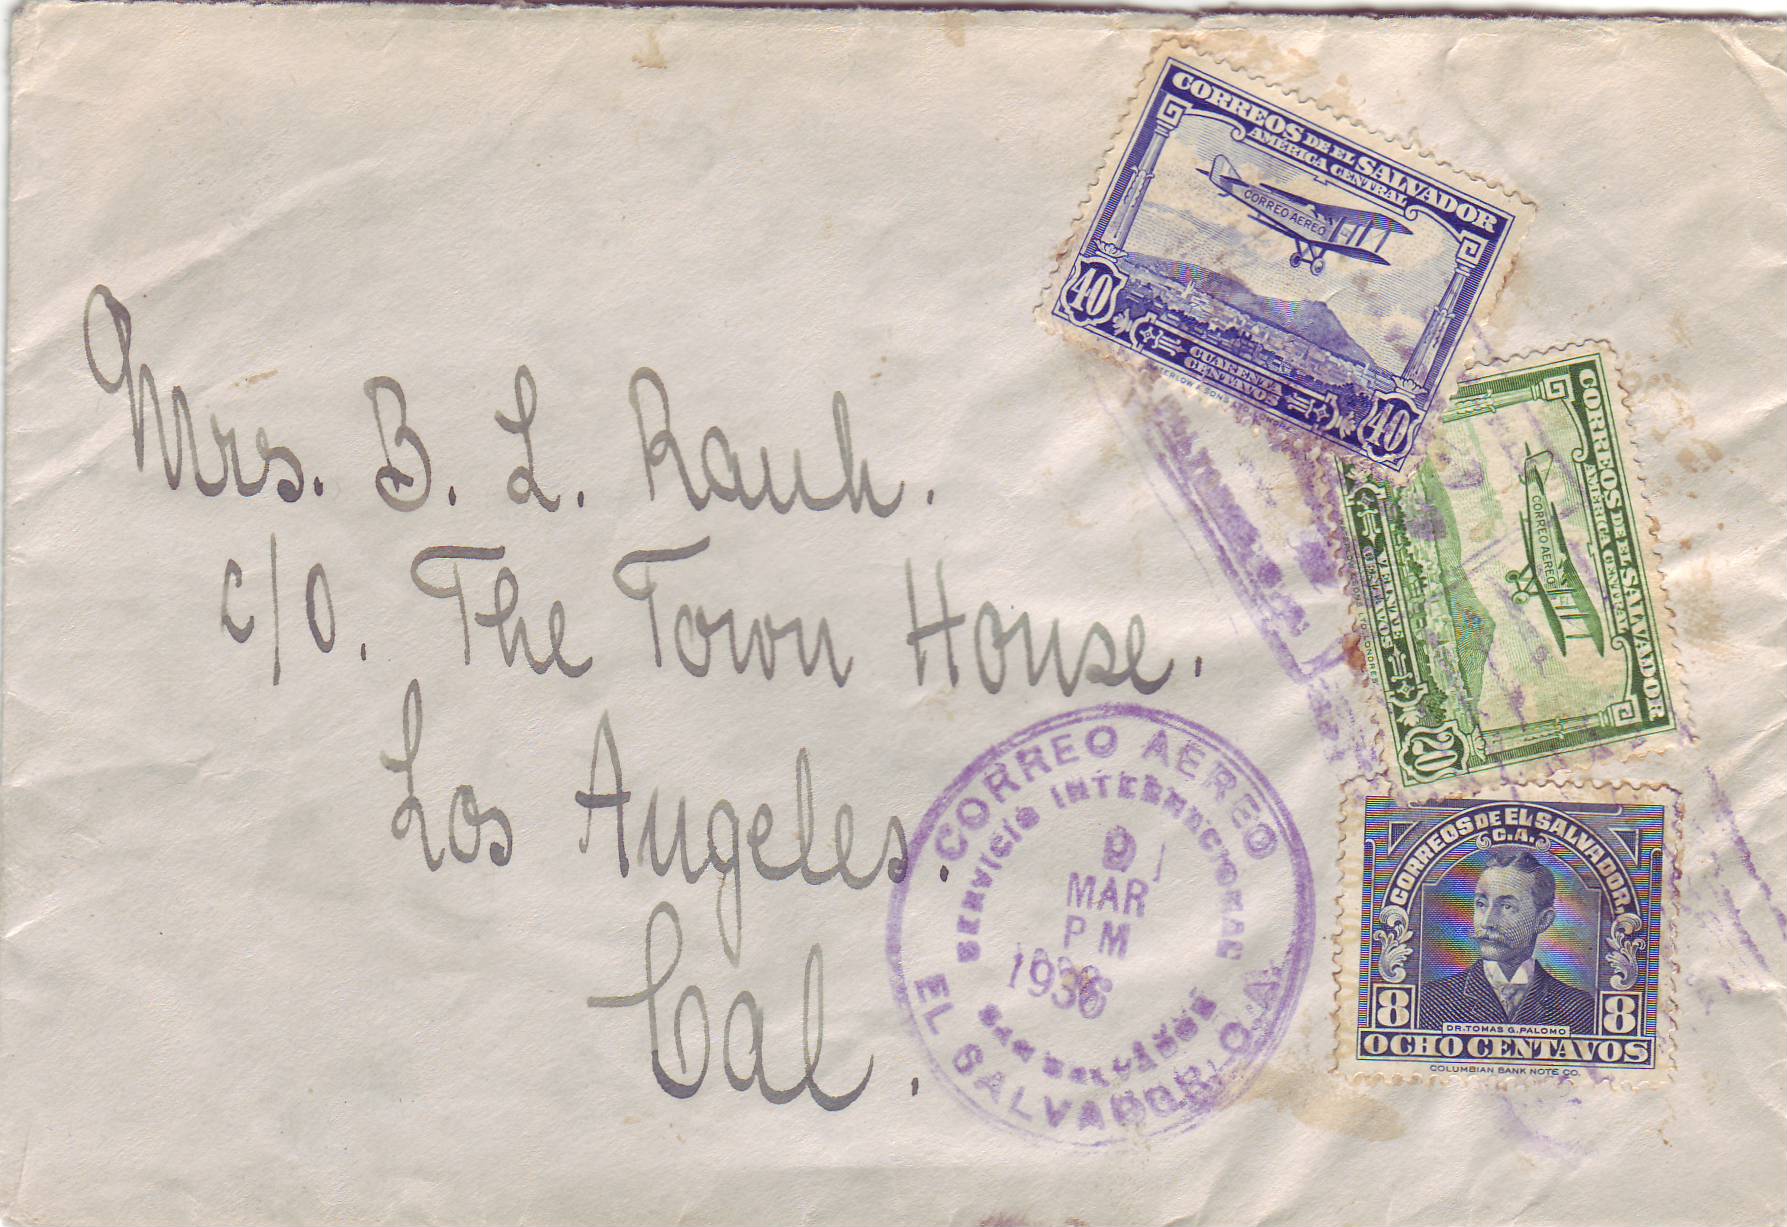 CORREOS DE EL SALVADOR
AMÉRICA CENTRAL
CORREO AEREO
40
40
CUARENTA
CENTAVOS
WATERLOW & SONS LTD. LONDRES
CORREOS DE EL SALVADOR
AMÉRICA CENTRAL
CORREO AEREO
20
VEINTE
CENTAVOS
CORREOS DE EL SALVADOR.
C.A.
8
8
DR. TOMAS G. PALOMO
OCHO CENTAVOS
COLUMBIAN BANK NOTE CO.
Mrs. B. L. Rauh.
c/o. The Town House.
Los Angeles.
Cal.
CORREO AEREO
SERVICIO INTERNACIONAL
9
MAR
PM
1936
SAN SALVADOR
EL SALVADOR, C.A.